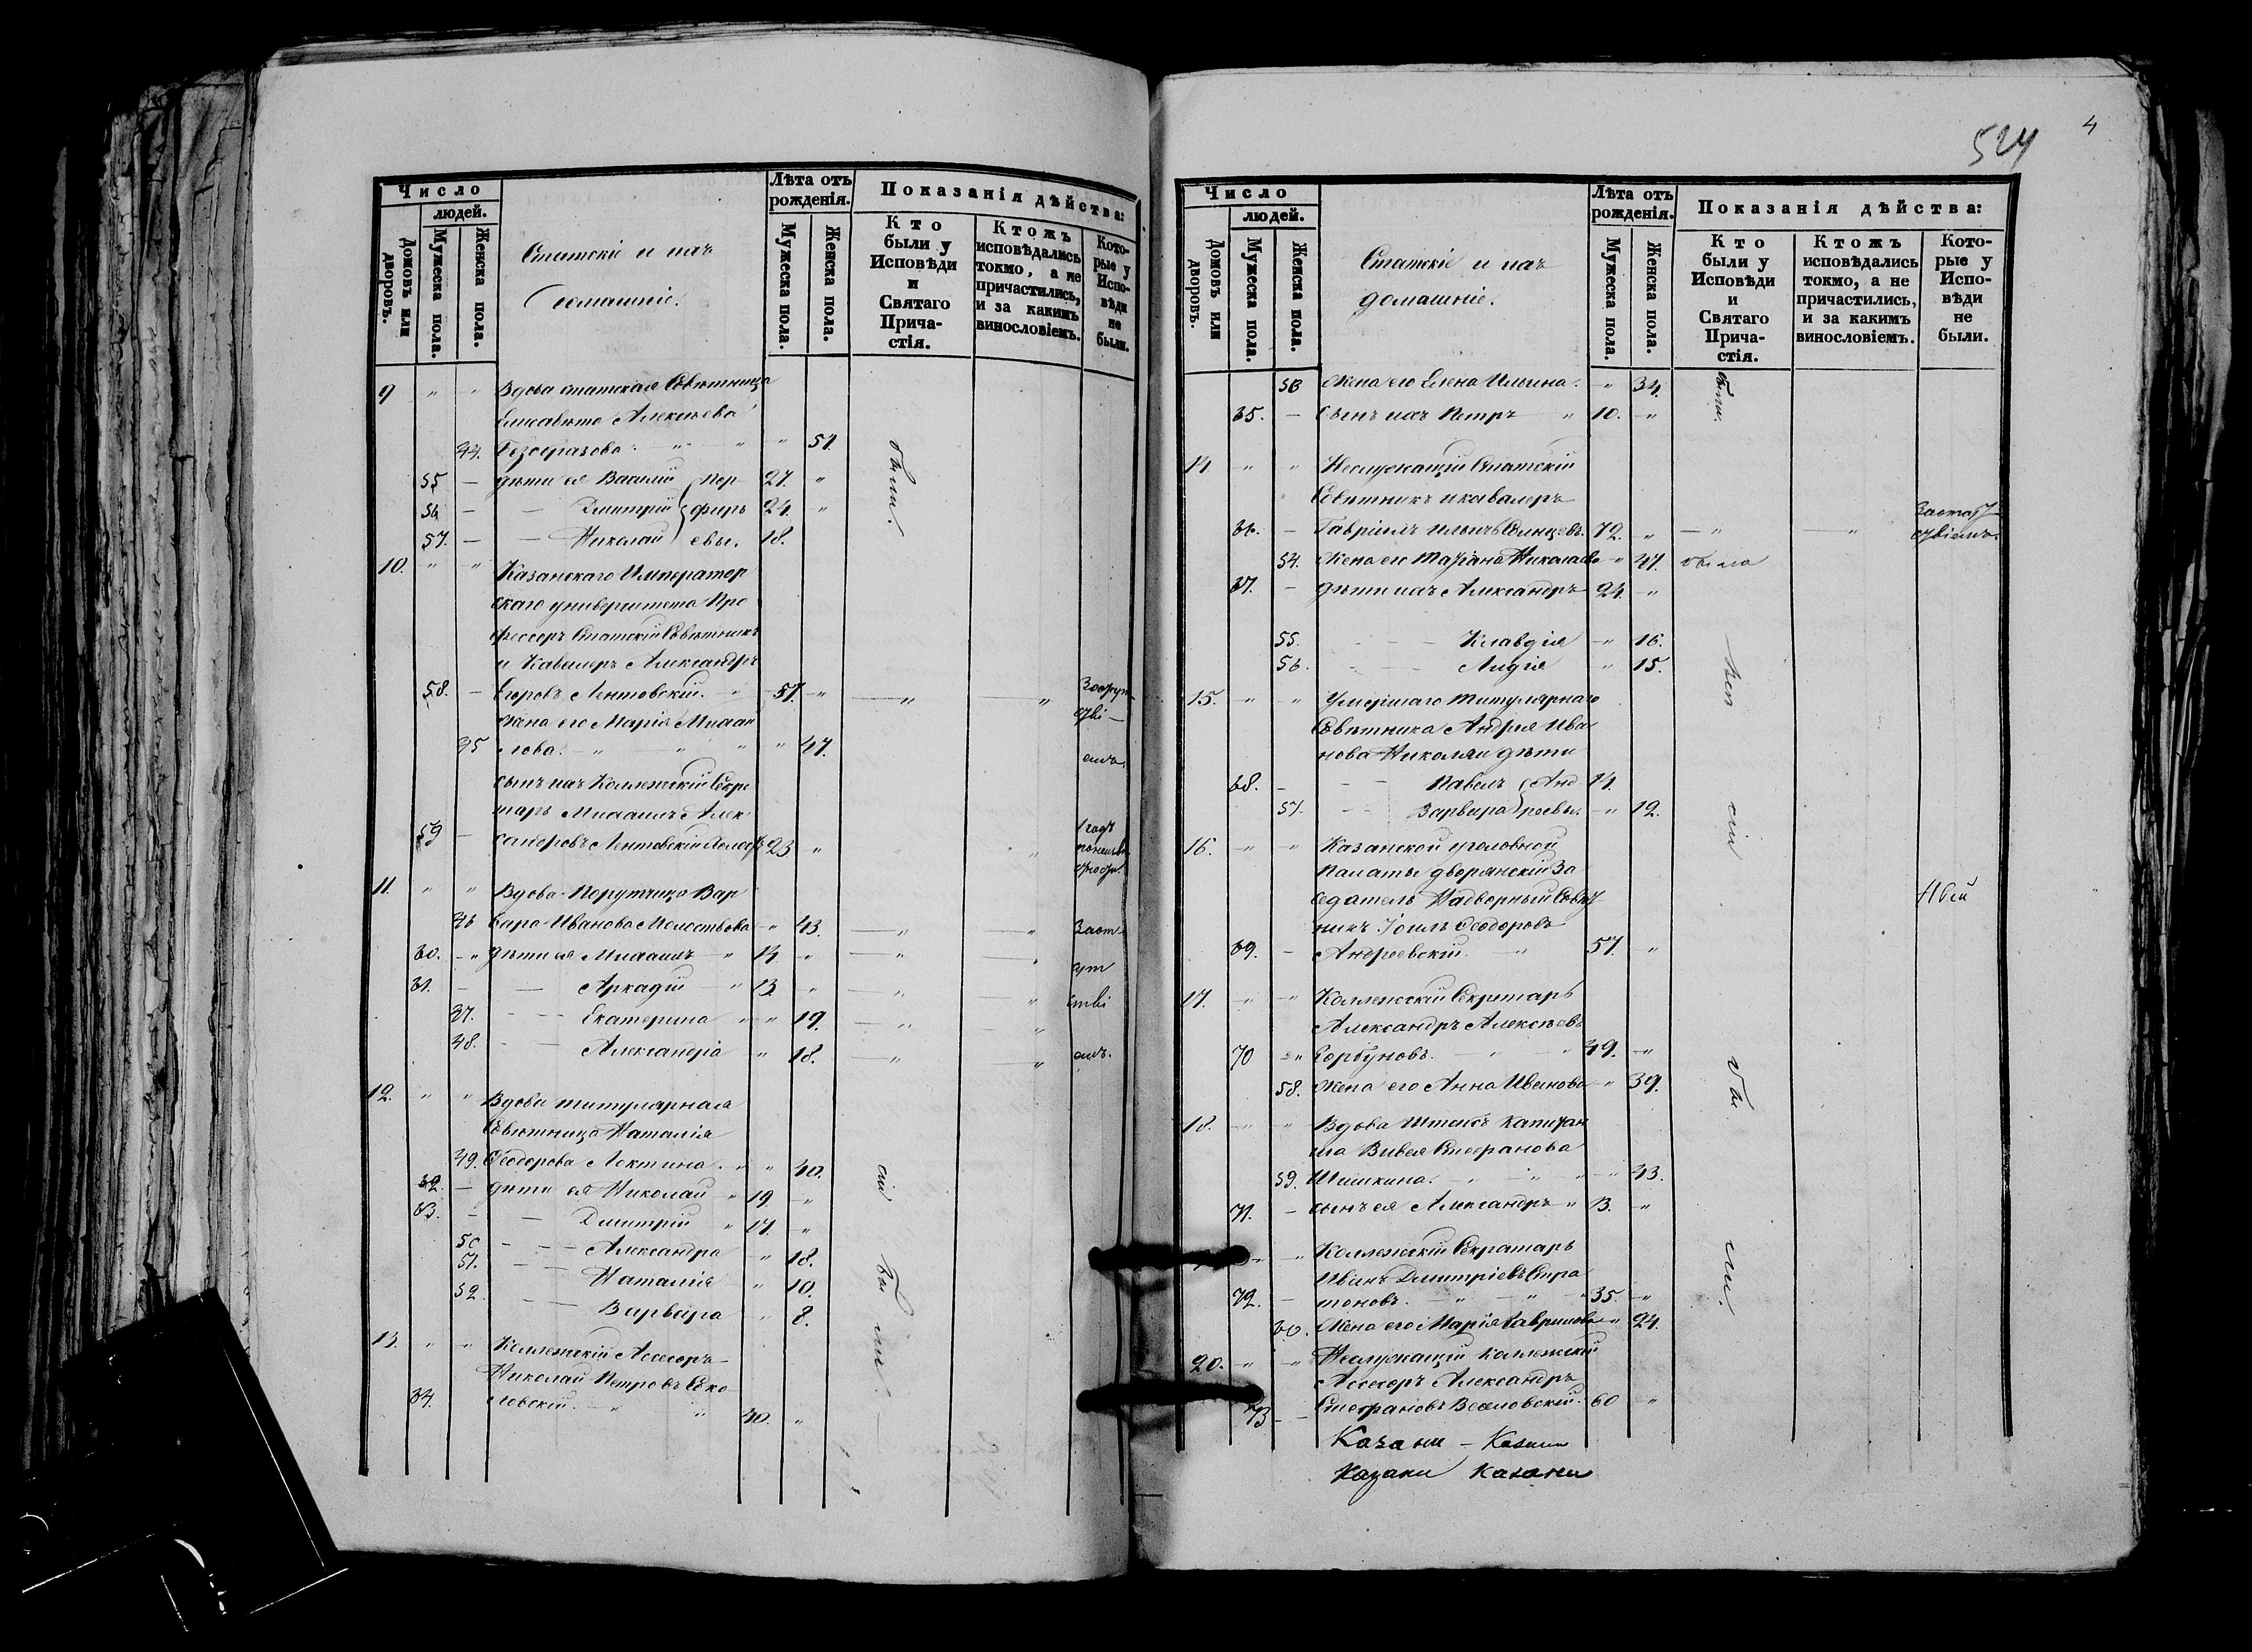 Число
людей.
Домовъ или дворовъ.
Мужеска пола.
Женска пола.
Статскіе и ихъ
домашніе.
Лѣта отъ
рожденія.
Мужеска пола.
Женска пола.
Показанія дѣйства:
Кто
были у
Исповѣди
и
Святаго
Прича-
стія.
Ктожъ
исповѣдались
токмо, а не
причастились,
и за какимъ
винословіемъ.
Кото-
рые у
Испо-
вѣди
не
были.
9 " " Вдова статская Совѣтница
Елисавета Алексѣева
44. Безобразова " " " 51.
были.
55 — дѣти ея Василій Пор- 27. "
56 — — Дмитрій фирь 24. "
57. — — Николай евы. 18.
10. " " Казанскаго Император
скаго университета Про
фессоръ Статскій Совѣтникъ
и Кавалеръ Александръ
58. — Егоровъ Лентовскій. " 51. " — " "
Жена его Марія Михаи
45 лова. " " " " 47.
емъ.
сынъ ихъ Коллежскій Секре
тарь Михаилъ Алек
59 — сандровъ Лентовскій 23 " " "
11. " " Вдова Порутчица Вар
46 вара Иванова Молоствова " 43. — " — " Заот
60. — " дѣти ея Михаилъ " 14 " — " — "
61. — — Аркадій " 13. " — " — " ствi
47. — — Екатерина " " 19. — " — "
48. — — Александра " 18. — " — " емъ.
12. " " Вдова титулярная
Совѣтница Наталія
49. Ѳеодорова Локтина. " " 40.
62. — дѣти ея Николай " 19 "
63. — — Дмитрій " 17. "
50 — — Александра " 18.
51. — — Наталія " 10.
52. — — Варвара " 8.
13. " " Коллежскій Ассесоръ
Николай Петровъ Соко
64. ловскій. " " 40. "
524
4
Число
людей.
Домовъ или дворовъ.
Мужеска пола.
Женска пола.
Статскіе и ихъ
домашніе.
Лѣта отъ
рожденія.
Мужеска пола.
Женска пола.
Показанія дѣйства:
Кто
были у
Исповѣди
и
Святаго
Прича-
стія.
Ктожъ
исповѣдались
токмо, а не
причастились,
и за какимъ
винословіемъ.
Кото-
рые у
Испо-
вѣди
не
были.
53 Жена его Елена Ильина. " 34.
были.
65. — Сынъ ихъ Петръ " 10. "
14 " " Неслужащій Статскій
Совѣтникъ и кавалеръ
66. — Гавріилъ Ильичъ Солнцевъ. 72. " — " — "
54. Жена его Татіана Николаева " 47. была
67. — дѣти ихъ Александръ 24. "
55. — — Клавдія " 16.
56. — — Лидія " 15.
15. " " Умершаго Титулярнаго
Совѣтника Андрея Ива
нова Николаи дѣти
68. — — Павелъ Анд 14.
57. — — Варвара реевы. " 12.
16. " " Казанской уголовной
Палаты дворянскій За
седатель Надворный Совѣт
никъ Іоилъ Ѳеодоровъ
69. — Андреевскій. — " 57. "
17. " " Коллежскій Секретарь
Александръ Алексѣевъ
70 — " Горбуновъ. — " — " 49. "
58. Жена его Анна Иванова " 39.
18. " " Вдова Штабсъ Капитан
ша Вивея Стефанова
59. Шишкина. " " " " 43.
71. — сынъ ея Александръ " 13. "
" Коллежскій Секретарь
Иванъ Дмитріевъ Стра
72. — тоновъ. — " — " " 35. "
60. Жена его Марія Гаврилова " 24.
20. " " Неслужащій Коллежскій
Ассесоръ Александръ
73 — Стефановъ Веселовскій. 60 "
Казани — Казани
Казани Казани